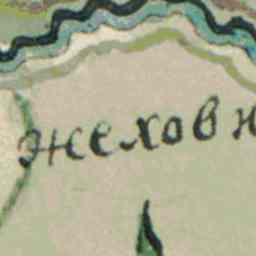 жеховн